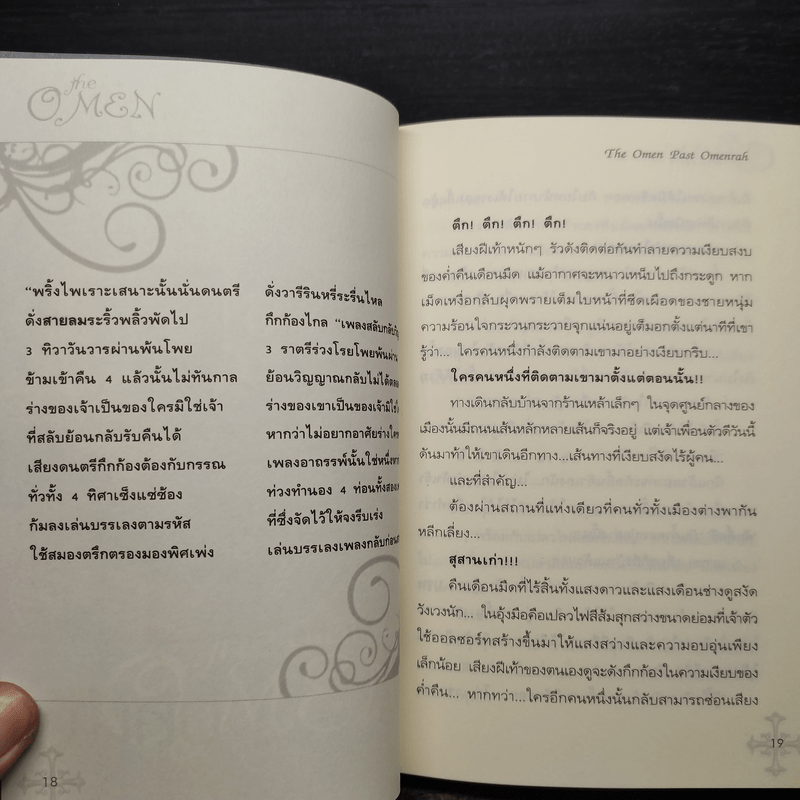 the
OMEN
"พริ้งไพเราะเสนาะนั้นนั่นดนตรี
ดั่งวารีรินหรี่ระรื่นไหล
ดั่งสายลมระริ้วพลิ้วพัดไป
กึกก้องไกล "เพลงสลับกลับ
3 ทิวาวันวารผ่านพ้นโพย
3 ราตรีร่วงโรยโพยพ้นผ่าน
ข้ามเข้าคืน 4 แล้วนั้นไม่ทันกาล
ย้อนวิญญาณกลับไม่ได้
ร่างของเจ้าเป็นของใครมิใช่เจ้า
ร่างของเขาเป็นของเจ้ามิใช่
ที่สลับย้อนกลับรับคืนได้
หากว่าไม่อยากอาศัยร่าง
เสียงดนตรีกึกก้องต้องกับกรรณ
เพลงอาถรรพ์นั้นใช่หนึ่ง
ทั่วทั้ง 4 ทิศาเซ็งแซ่ซ้อง
ท่วงทำนอง 4 ท่อนทั้งสอง
ก้มลงเล่นบรรเลงตามรหัส
ที่ซึ่งจัดไว้ให้จงรีบเร่ง
ใช้สมองตรึกตรองมองพิศเพ่ง
เล่นบรรเลงเพลงกลับก่อน
18
The Omen Past Omenrah
ตึก! ตึก! ตึก! ตึก!
เสียงฝีเท้าหนักๆ รัวดังติดต่อกันทำลายความเงียบสงบ
ของค่ำคืนเดือนมืด แม้อากาศจะหนาวเหน็บไปถึงกระดูก หาก
เม็ดเหงื่อกลับผุดพรายเต็มใบหน้าที่ซีดเผือดของชายหนุ่ม
ความร้อนใจกระวนกระวายจุกแน่นอยู่เต็มอกตั้งแต่นาทีที่เขา
รู้ว่า... ใครคนหนึ่งกำลังติดตามเขามาอย่างเงียบกริบ...
ใครคนหนึ่งที่ติดตามเขามาตั้งแต่ตอนนั้น!!
ทางเดินกลับบ้านจากร้านเหล้าเล็กๆ ในจุดศูนย์กลางของ
เมืองนั้นมีถนนเส้นหลักหลายเส้นก็จริงอยู่ แต่เจ้าเพื่อนตัวดีวันนี้
ดันมาท้าให้เขาเดินอีกทาง...เส้นทางที่เงียบสงัดไร้ผู้คน...
และที่สำคัญ...
ต้องผ่านสถานที่แห่งเดียวที่คนทั่วทั้งเมืองต่างพากัน
หลีกเลี่ยง...
สุสานเก่า!!!
คืนเดือนมืดที่ไร้สิ้นทั้งแสงดาวและแสงเดือนช่างดูสงัด
วังเวงนัก... ในอุ้งมือคือเปลวไฟสีส้มสุกสว่างขนาดย่อมที่เจ้าตัว
ใช้ออลซอร์ทสร้างขึ้นมาให้แสงสว่างและความอบอุ่นเพียง
เล็กน้อย เสียงฝีเท้าของตนเองดูจะดังกึกก้องในความเงียบของ
ค่ำคืน... หากทว่า...ใครอีกคนหนึ่งนั้นกลับสามารถซ่อนเสียง
19